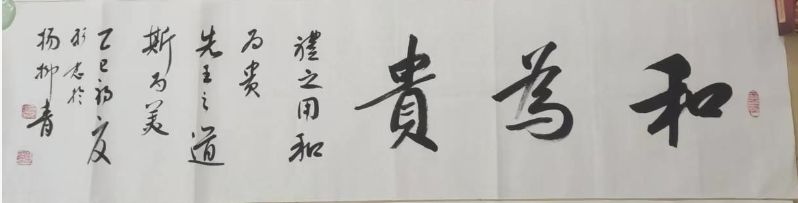 和為貴
禮之用和
为贵
先王之道
斯为美
乙巳初夏
志於
杨柳青